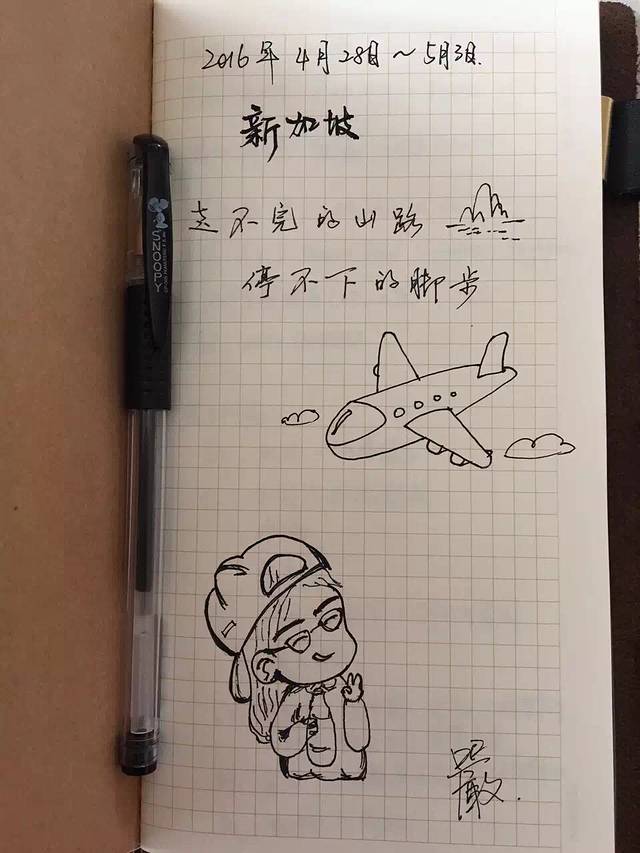 2016年 4月28日～5月3日.
新加坡
走不完的山路
停不下的脚步
SNOOPY